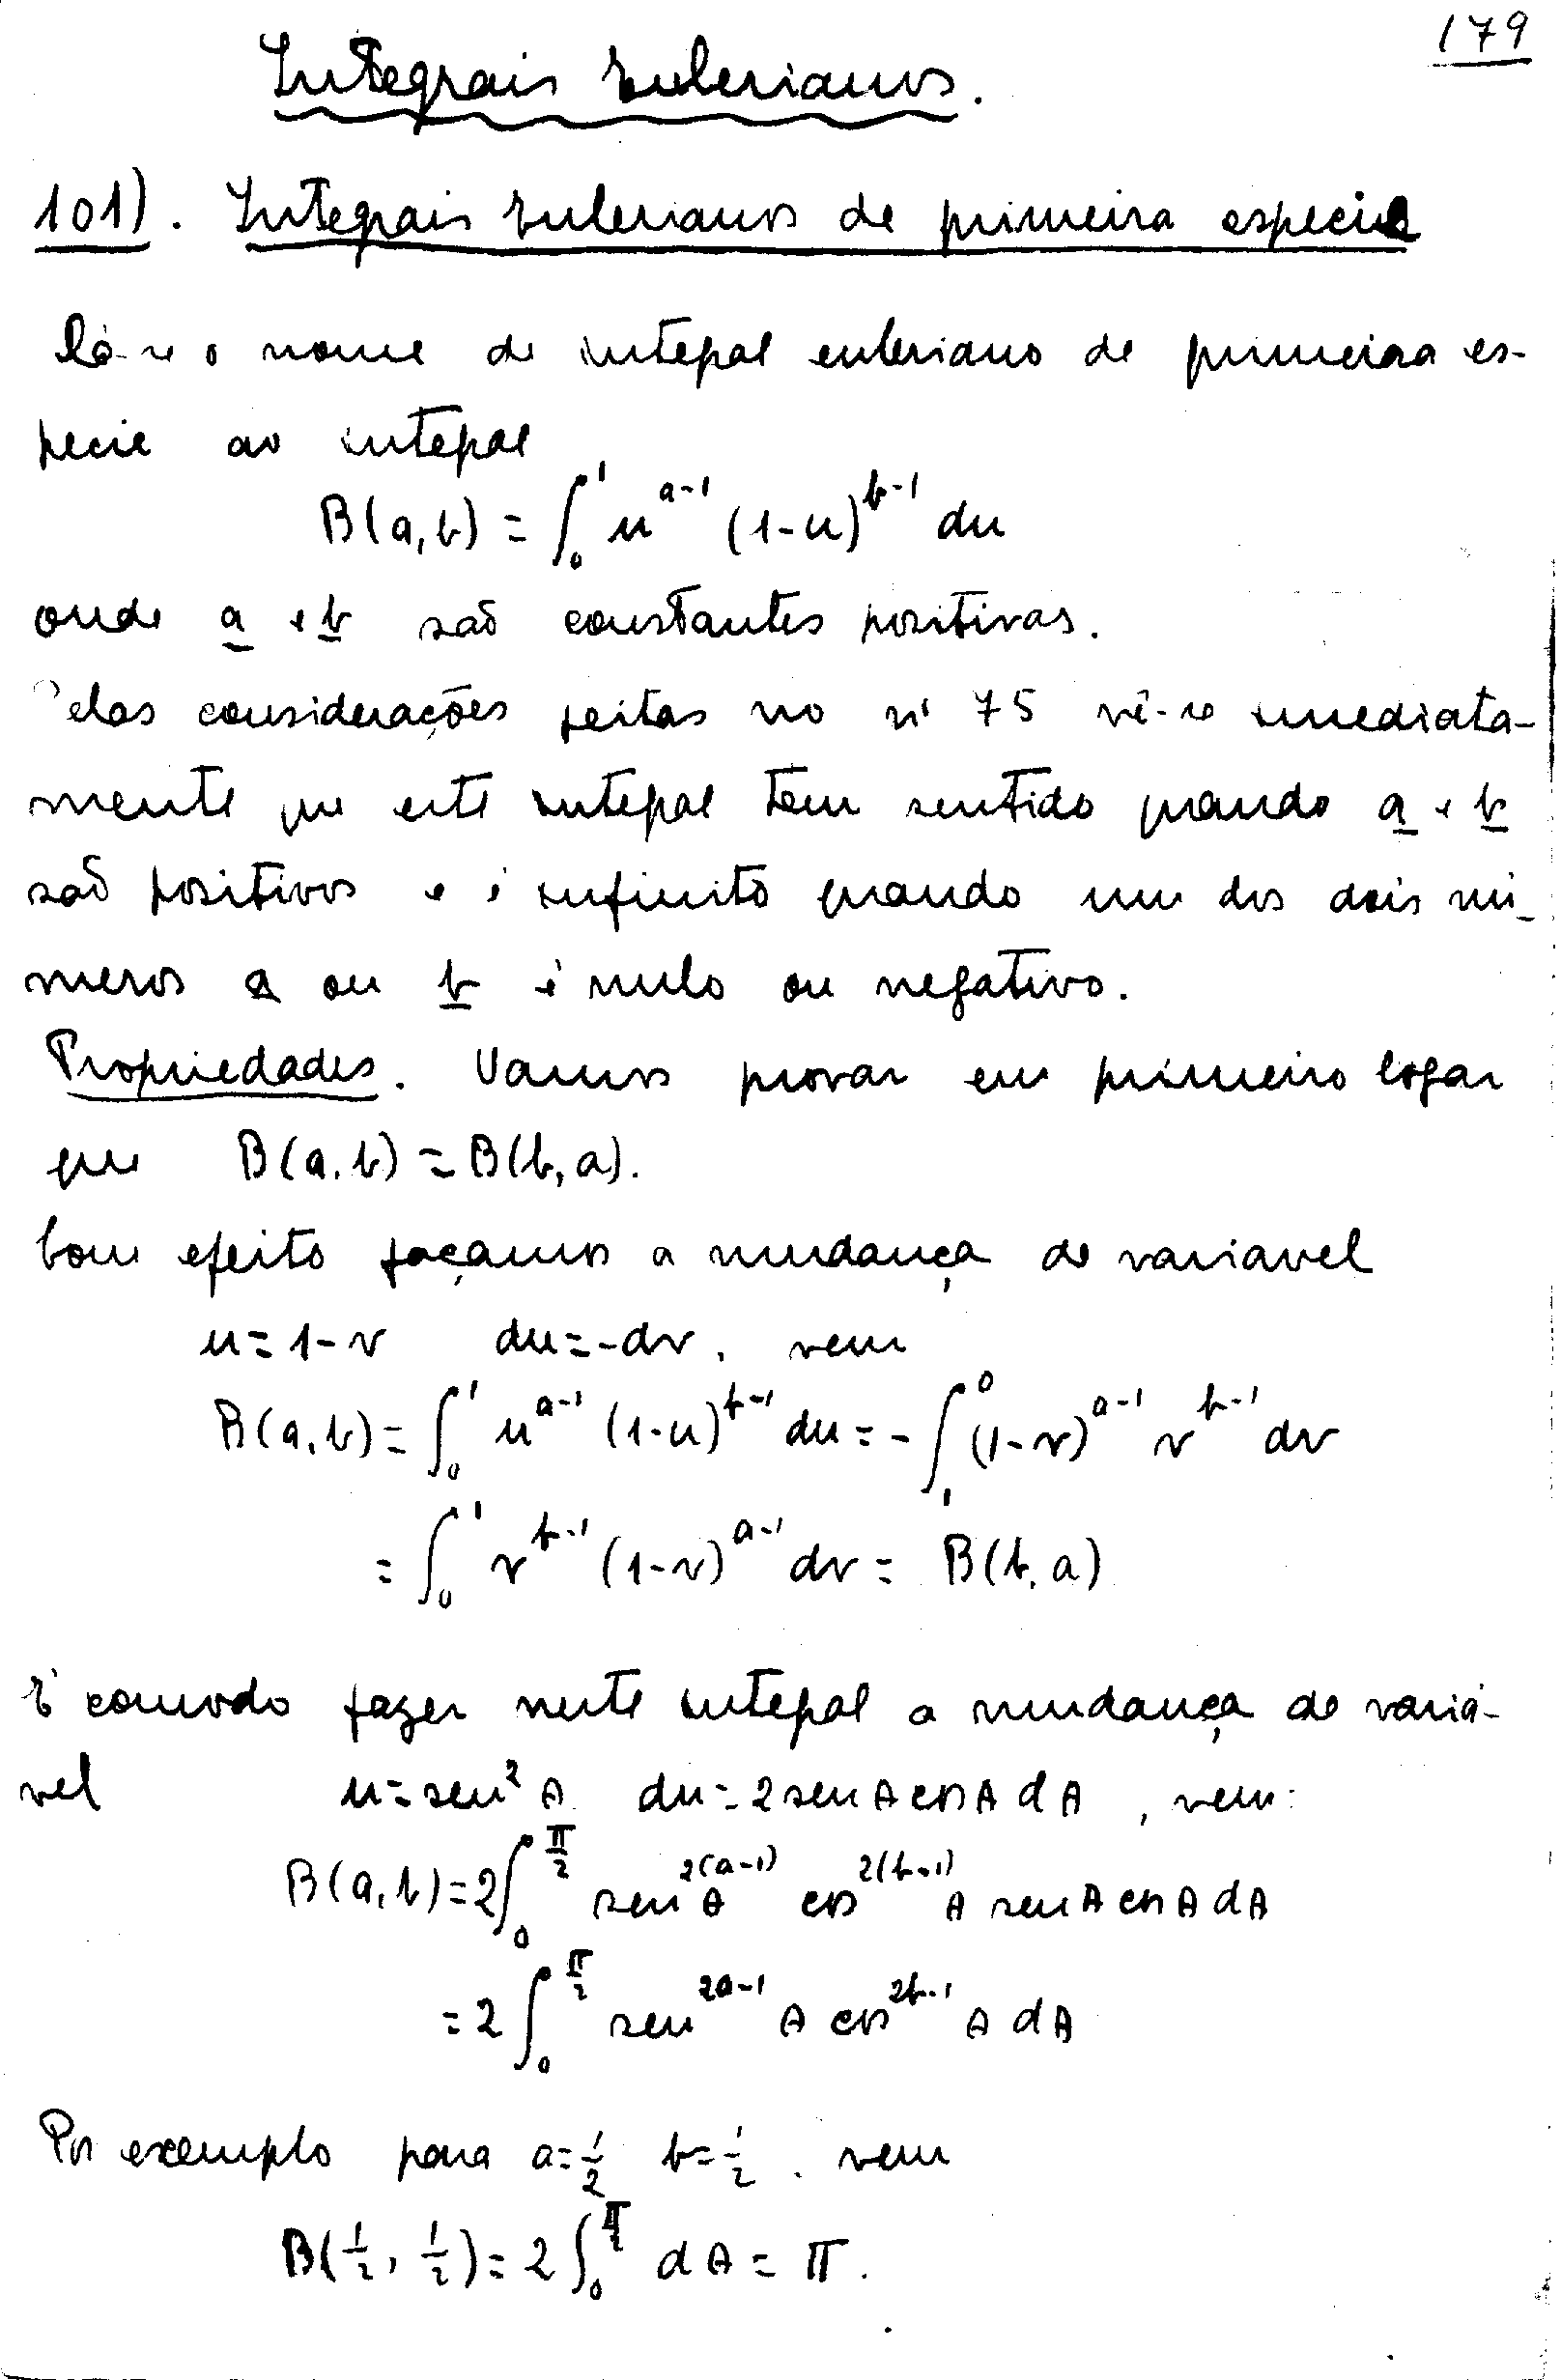 179
Integrais Eulerianos.
101). Integrais Eulerianos de primeira especie
Dá-se o nome de integral euleriano de primeira es-
pecie ao integral
B(a,b) = ∫₀¹ u^{a-1} (1-u)^{b-1} du
onde a e b são constantes positivas.
Pelas considerações feitas no nº 75 vê-se imediata-
mente que este integral tem sentido quando a e b
são positivos e é infinito quando um dos dois nú-
meros a ou b é nulo ou negativo.
Propriedades. Vamos provar em primeiro logar
que B(a,b) = B(b,a).
Com efeito façamos a mudança de variavel
u = 1-v du = -dv, vem
B(a,b) = ∫₀¹ u^{a-1} (1-u)^{b-1} du = - ∫₁⁰ (1-v)^{a-1} v^{b-1} dv
= ∫₀¹ v^{b-1} (1-v)^{a-1} dv = B(b,a)
É comodo fazer neste integral a mudança de variá-
vel u = sen² θ du = 2 sen θ cos θ d θ, vem:
B(a,b) = 2 ∫₀^{π/2} sen^{2(a-1)} θ cos^{2(b-1)} θ sen θ cos θ d θ
= 2 ∫₀^{π/2} sen^{2a-1} θ cos^{2b-1} θ d θ
Por exemplo para a = 1/2 b = 1/2. vem
B(1/2, 1/2) = 2 ∫₀^{π/2} d θ = π.